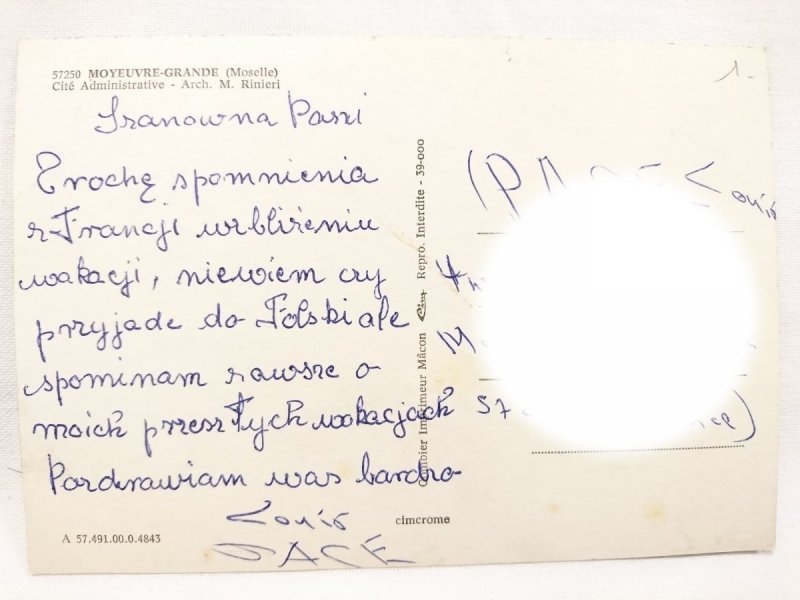 57250 MOYEUVRE-GRANDE (Moselle)
Cité Administrative - Arch. M. Rinieri
Szanowna Pani
Trochę spomnienia
z Francji wzbliżeniu
wakacji, niewiem czy
przyjade do Polski ale
spominam zawsze o
moich przeszłych wakacjach
Pozdrawiam was bardzo
Louis
PACÉ
cimcrome
A 57.491.00.0.4843
Combier Imprimeur Mâcon Cim Repro. Interdite - 39-000
1-
Louis
57